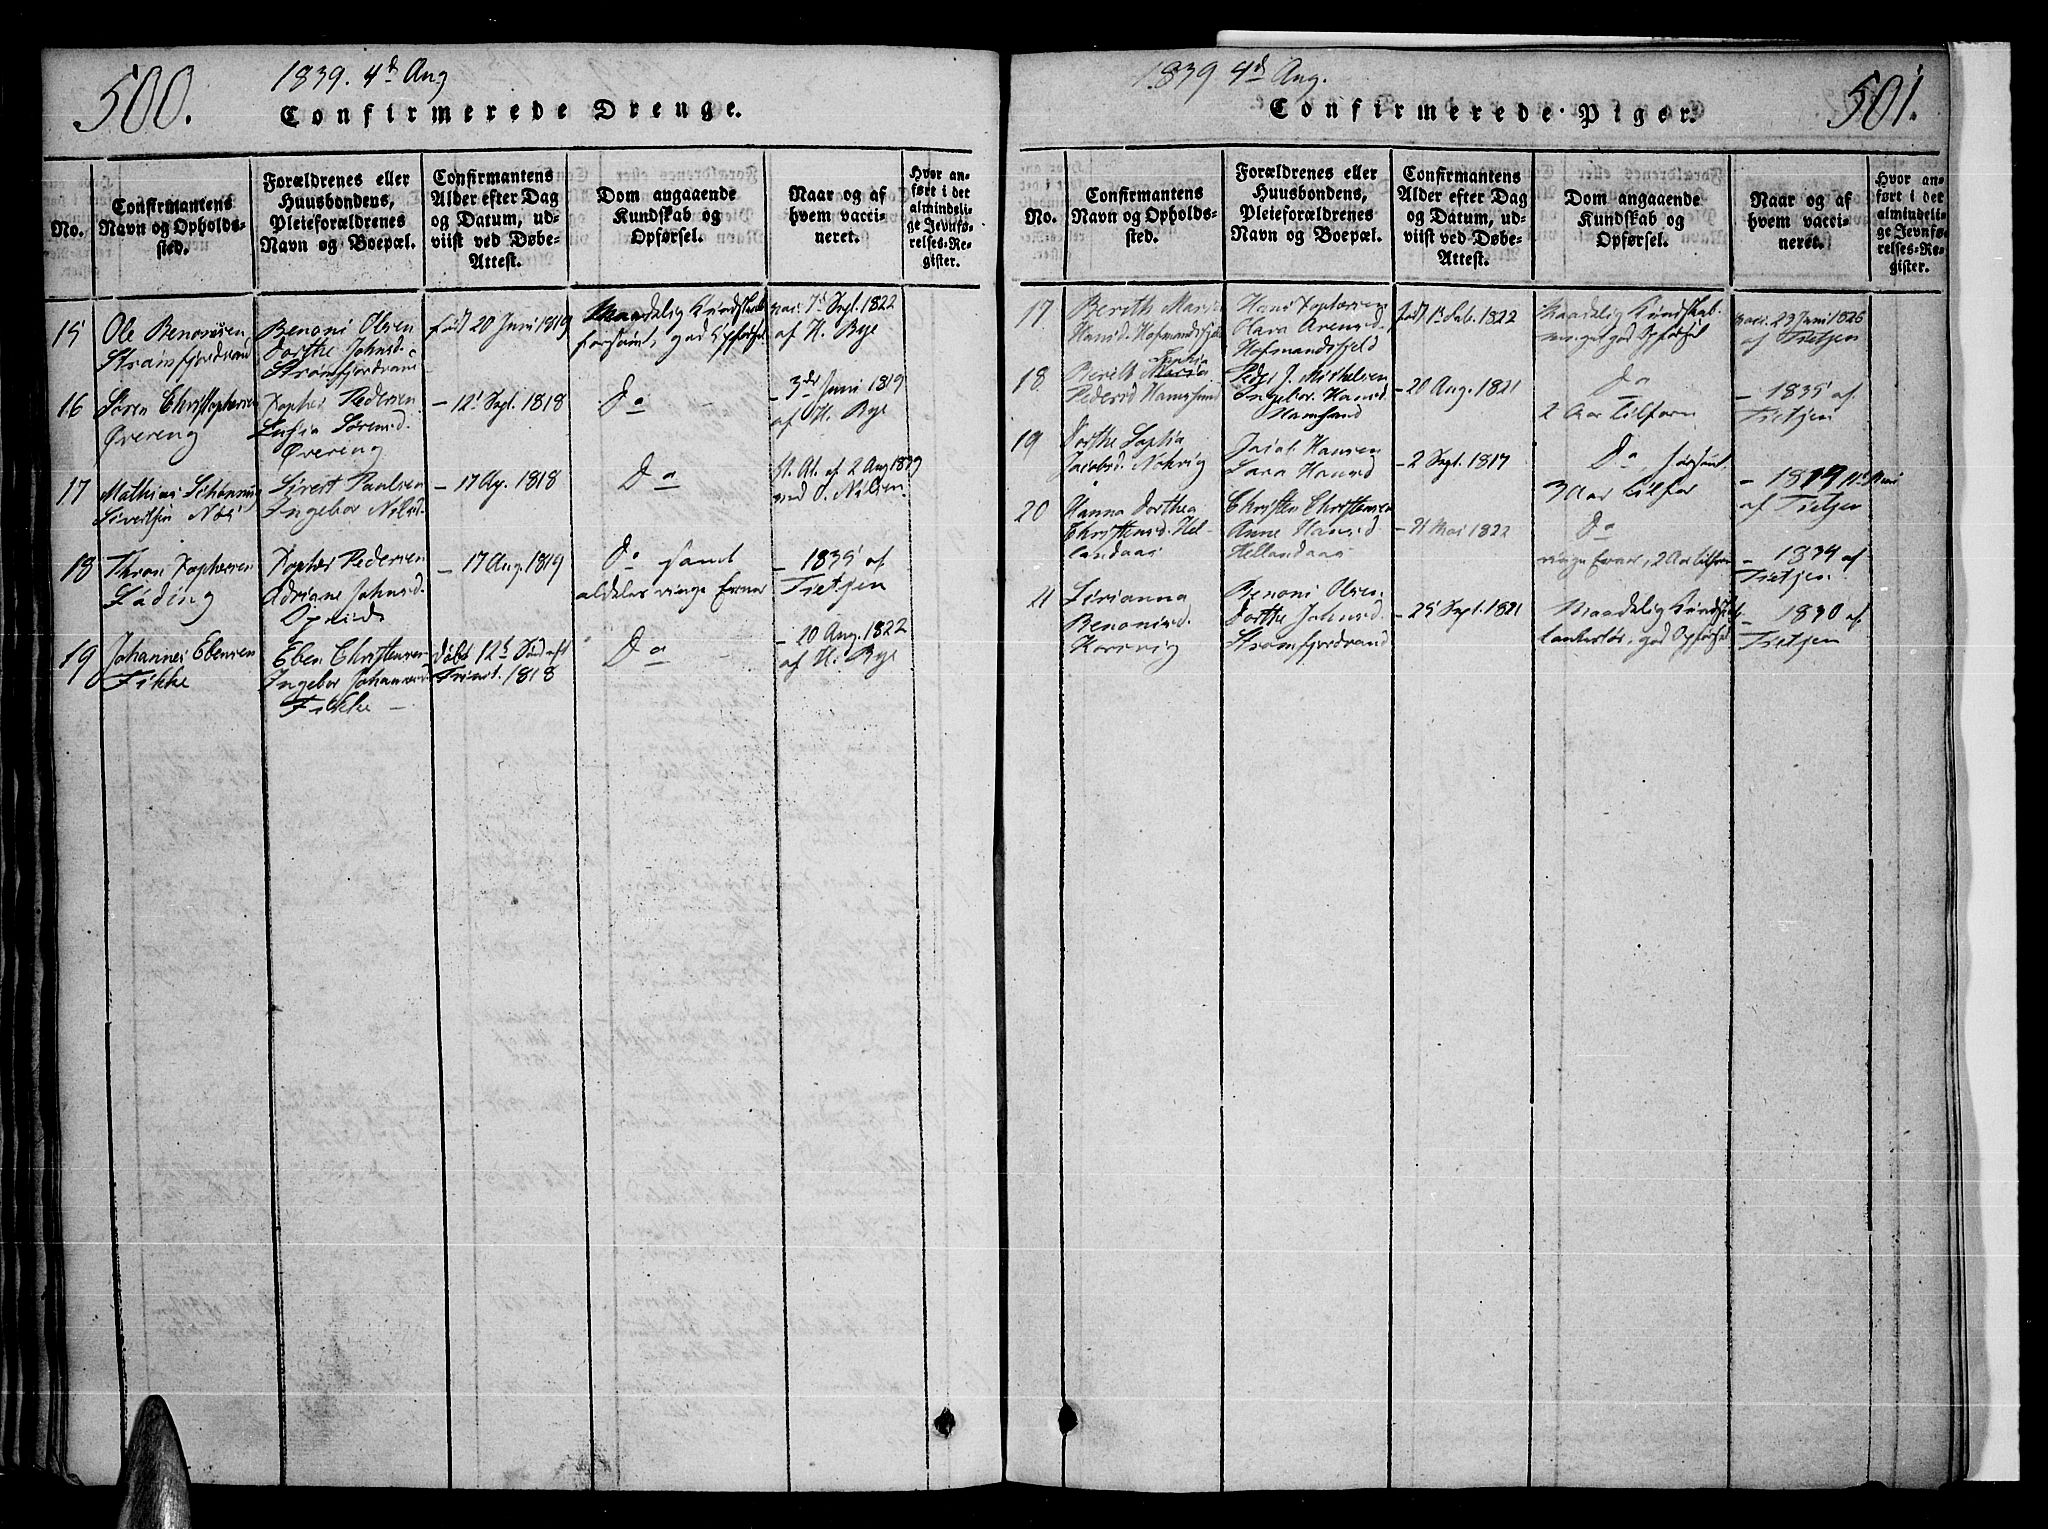 500.
1839. 4d Aug
Confirmerede Drenge.
No.
Confirmantens
Navn og Opholds-
sted.
Forældrenes eller
Huusbondens,
Pleieforældrenes
Navn og Boepæl.
Confirmantens
Alder efter Dag
og Datum, ud-
viist ved Døbe-
Attest.
Dom angaaende
Kundskab og
Opførsel.
Naar og af
hvem vacci-
neret.
Hvor an-
ført i det
almindeli-
ge Jevnfø-
relses-Re-
gister.
15
Ole Benonisen
Strømfjordrand
Benoni Olsen
Dorthe Johnsd.
Strømfjordrand
født 20 Juni 1819
Maadelig Kundskab
forsømt, god Opførsel
vac. 7d Sept. 1822
af H. Bye
16
Søren Christophersen
Øvereng
Xopher Pedersen
Sørensd
Øvereng
— 12t Sept. 1818
Do —
— 3de Juni 1819
af H. Bye
17
Mathias Schønning
Sivertsen
Sivert Paulsen
Ingebor Nilsd.
— 17 Ag. 1818
Do
At. af 2 Aug 1829
Nilsen
18
Thron Xophersen
Løding
Xopher Pedersen
Adriane Johnsd.
— 17 Aug. 1819
Do samt
aldeles ringe Evner
— 1835 af
Tietjen
19
Johannes Ebensen
Fikke
Eben Christensen
Ingebor Johannesd
Fikke —
døbt 12t Sønd. eft
Trinit. 1818
Do —
— 20 Aug. 1822
af H. Bye
501.
1839 4d Aug.
Confirmerede Piger.
No.
Confirmantens
Navn og Opholds-
sted.
Forældrenes eller
Huusbondens,
Pleieforældrenes
Navn og Boepæl.
Confirmantens
Alder efter Dag
og Datum, ud-
viist ved Døbe-
Attest.
Dom angaaende
Kundskab og
Opførsel.
Naar og af
hvem vacci-
neret.
Hvor an-
ført i det
almindeli-
ge Jevnfø-
relses-Re-
gister.
17
Berith
Hansd. Hofmandsfjeld
Hans Xophersen
Arensd.
Hofmandsfjeld
født 1t Feb. 1822
Maadelig Kundskab
meget god Opførsel
vacc. 23 Juni 1826
af Tietjen
18
Berith Maria Sophia
Pedersd Hamsund
Peder J. Mikkelsen
Ingebor. Hansd
Hamsund
— 20 Aug. 1821
Do
2 Aar tilforn
— 1835 af
Tietjen
19
Dorthe Sophia
Jacobsd.
Jacob Hansen
Sara Hansd
— 2 Sept. 1817
Do, forsømt
3 Aar tilfor
— 1819
af Tietjen
20
Hanna Dorthea
Christensd. Hel-
landaas
Christen Christensen
Anne Hansd
Hellandaas
— 21 Mai 1822
Do
ringe Evner, 2 Aar tilforn
— 1834 af
Tietjen.
21
Sirianna
Benonisd.
Korsvig
Benoni Olsen
Dorthe Johnsd
Strømfjordrand
— 25 Sept. 1821
Maadelig Kundskab
tankeløs, god Opførsel
— 1830 af
Tietjen